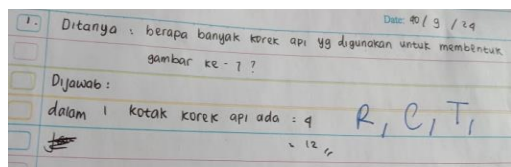 Date: 40 / 9 / 24
1. Ditanya : berapa banyak korek api yg digunakan untuk membentuk
gambar ke - 7 ?
Dijawab :
dalam 1 kotak korek api ada : 4 R, C, T,
= 12 ,,